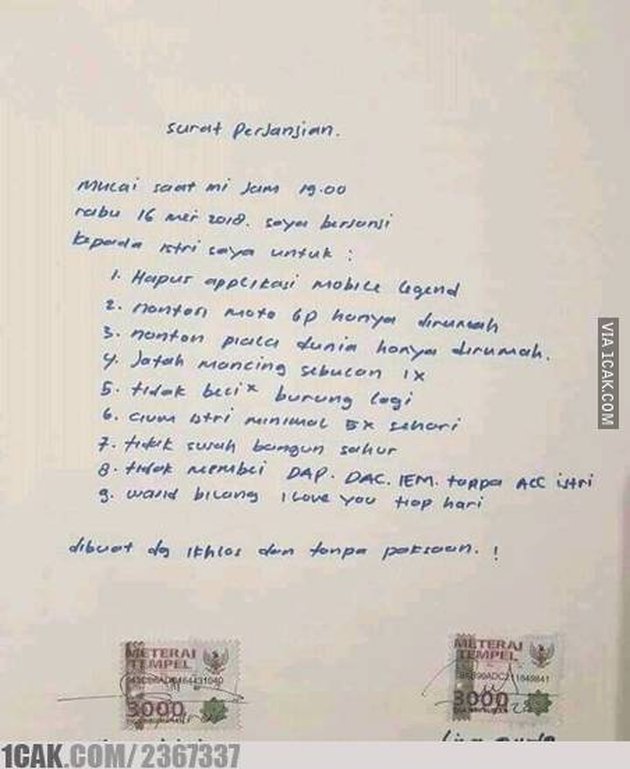 surat perjanjian.
mulai saat ini jam 19.00
rabu 16 mei 2018. saya berjanji
kepada istri saya untuk :
1. Hapus applikasi mobile legend
2. nonton moto GP hanya dirumah
3. nonton piala dunia hanya dirumah.
4. Jatah mancing sebulan 1x
5. tidak beli x burung lagi
6. cium istri minimal 5x sehari
7. tidak susah bangun sahur
8. tidak membeli DAP. DAC. IEM. tanpa ACC istri
9. wajib bilang I love you tiap hari
dibuat dg ikhlas dan tanpa paksaan. !
METERAI TEMPEL
3000
METERAI TEMPEL
3000
VIA 1CAK.COM
1CAK.COM/2367337